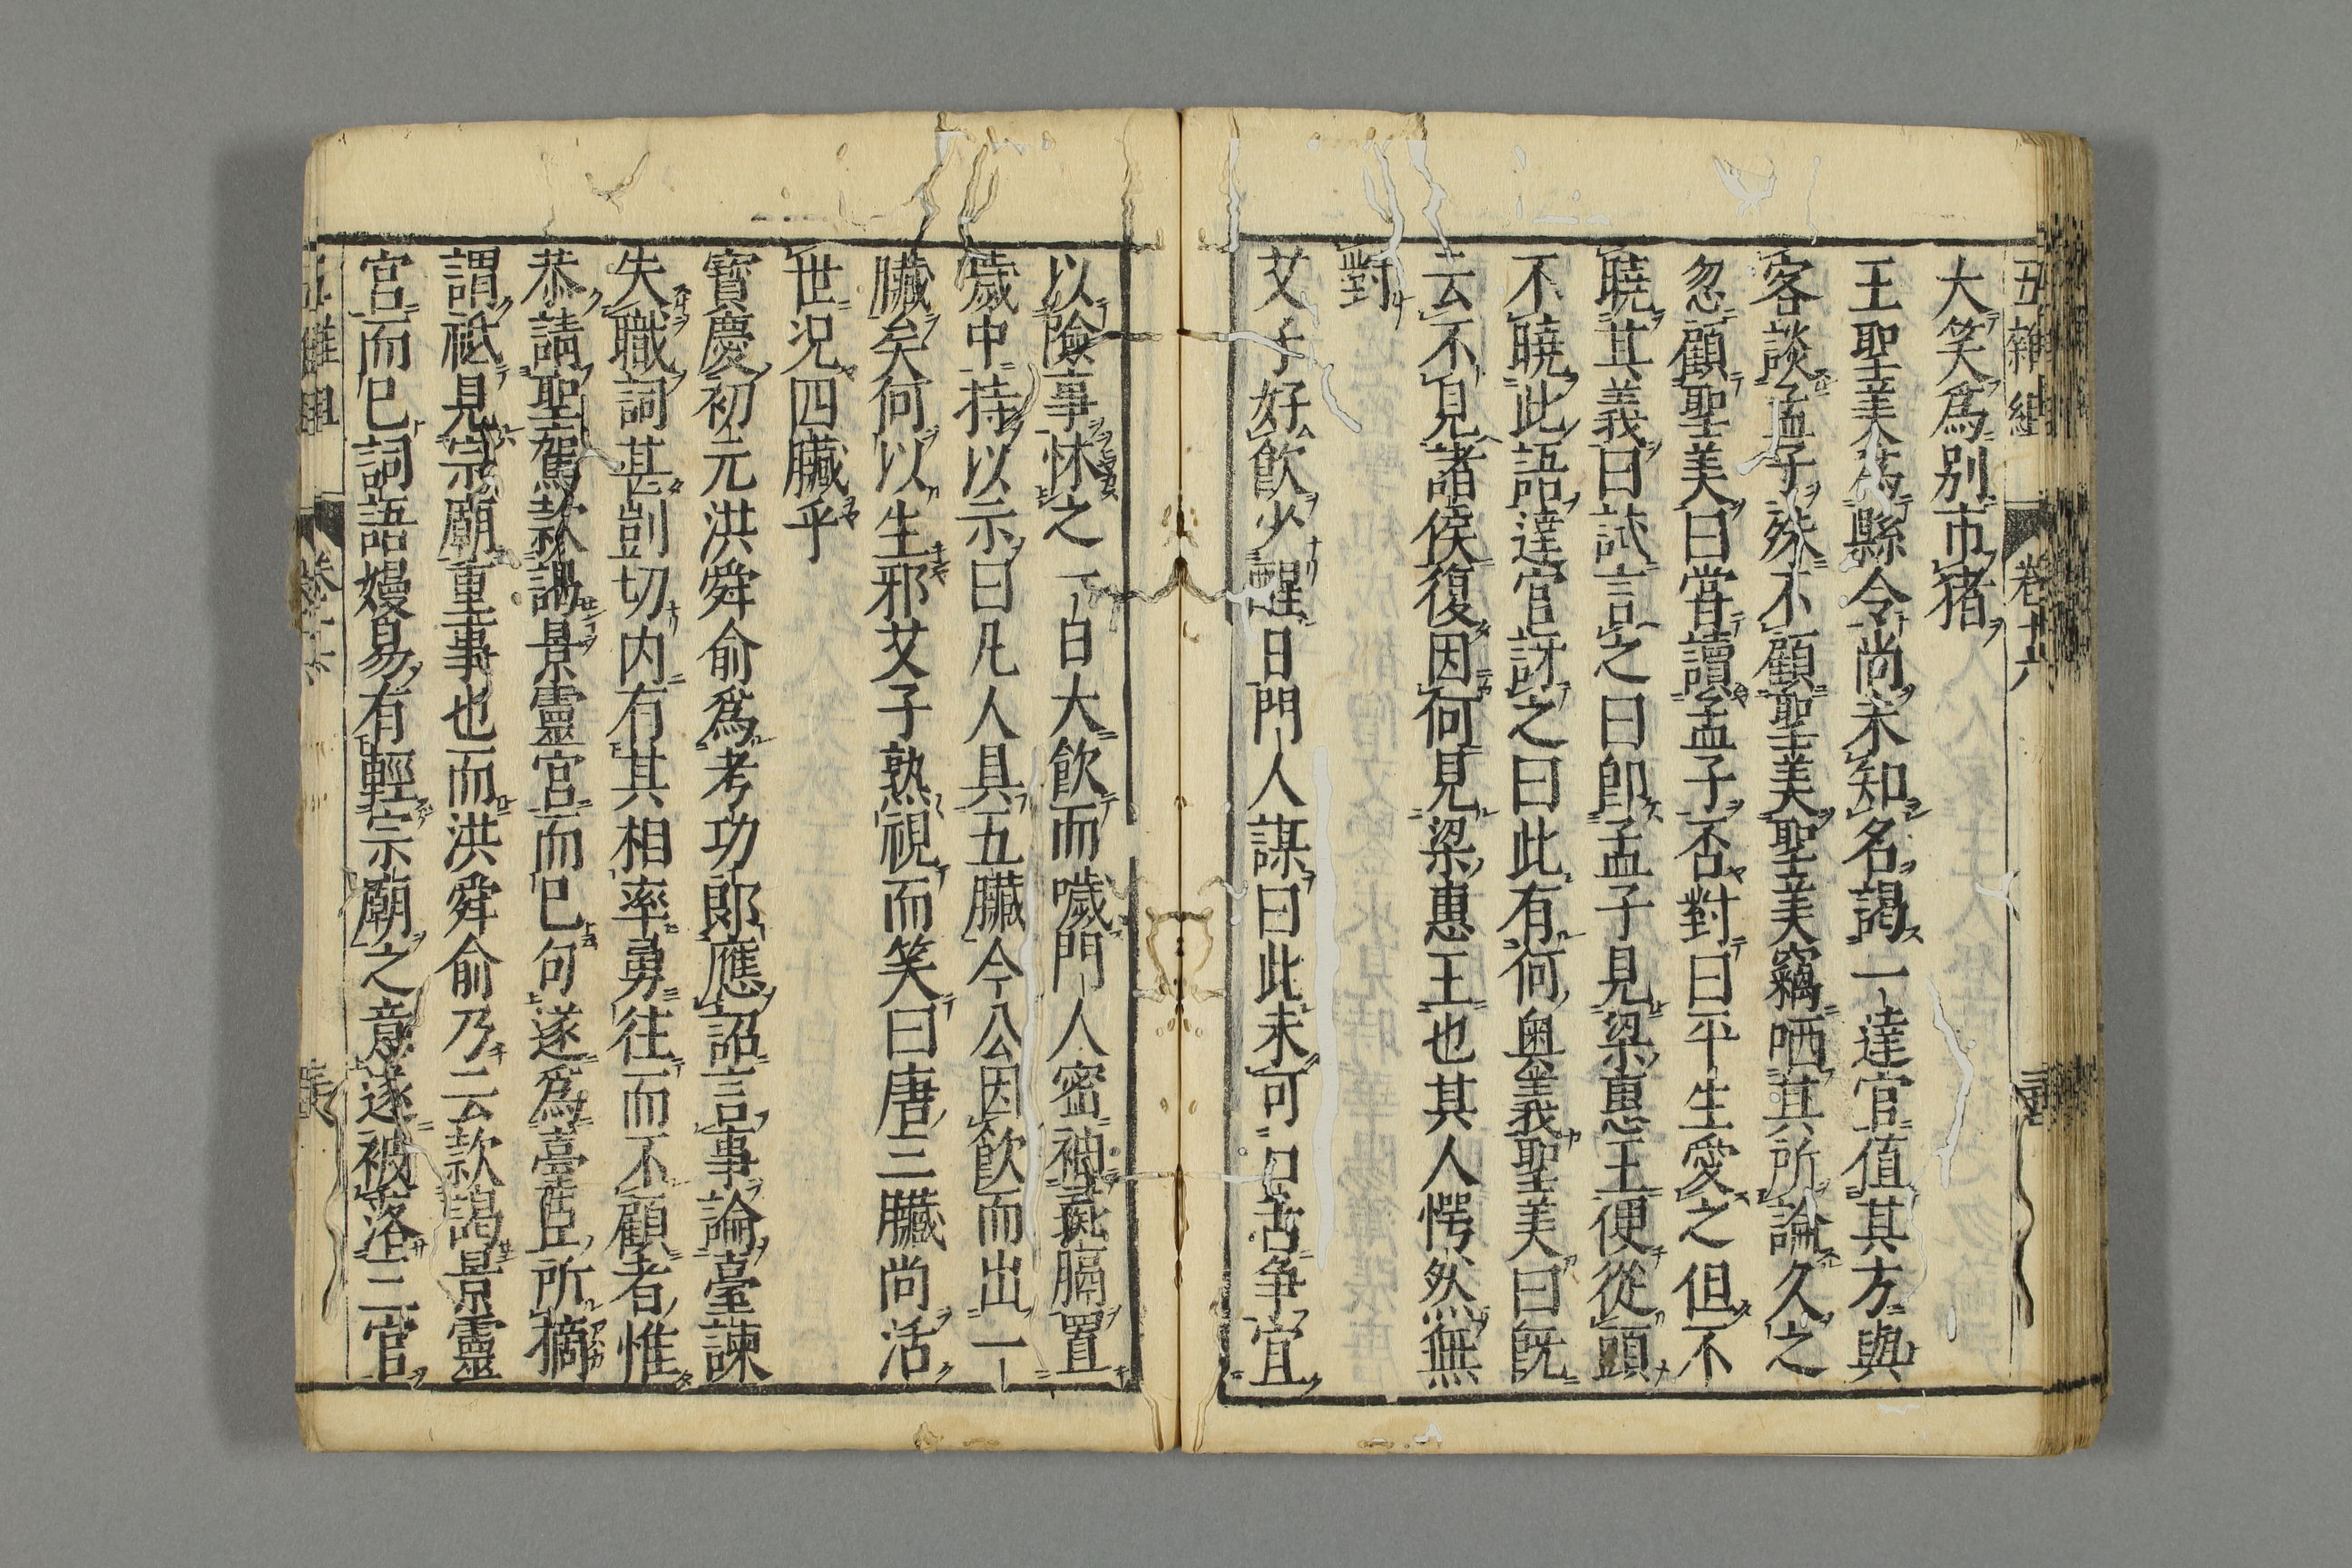 五雜組 卷十六
大笑爲別市猪
王聖美爲縣令尚未知名謁一達官值其方與
客談孟子殊不顧聖美聖美竊哂其所論久之
忽顧聖美曰嘗讀孟子否對曰平生愛之但不
曉其義曰試言之曰卽孟子見梁惠王便從頭
不曉此語達官訝之曰此有何奥義聖美曰旣
云不見諸侯復因何見梁惠王也其人愕然無
對
艾子好飲少醒日門人謀曰此未可口舌争宜
以險事怵之一日大飲而噦門人密袖彘膈置
噦中持以示曰凡人具五臟今公因飲而出一
臟矣何以生邪艾子熟視而笑曰唐三臟尚活
世况四臟乎
寳慶初元洪舜俞爲考功郎應詔言事論臺諫
失職詞甚剴切内有其相率勇往而不顧者惟
恭請聖駕款謁景靈宮而已句遂爲臺臣所摘
謂祗見宗廟重事也而洪舜俞乃云款謁景靈
宮而已詞語嫚易有輕宗廟之意遂被落三官
五雜組 卷十六